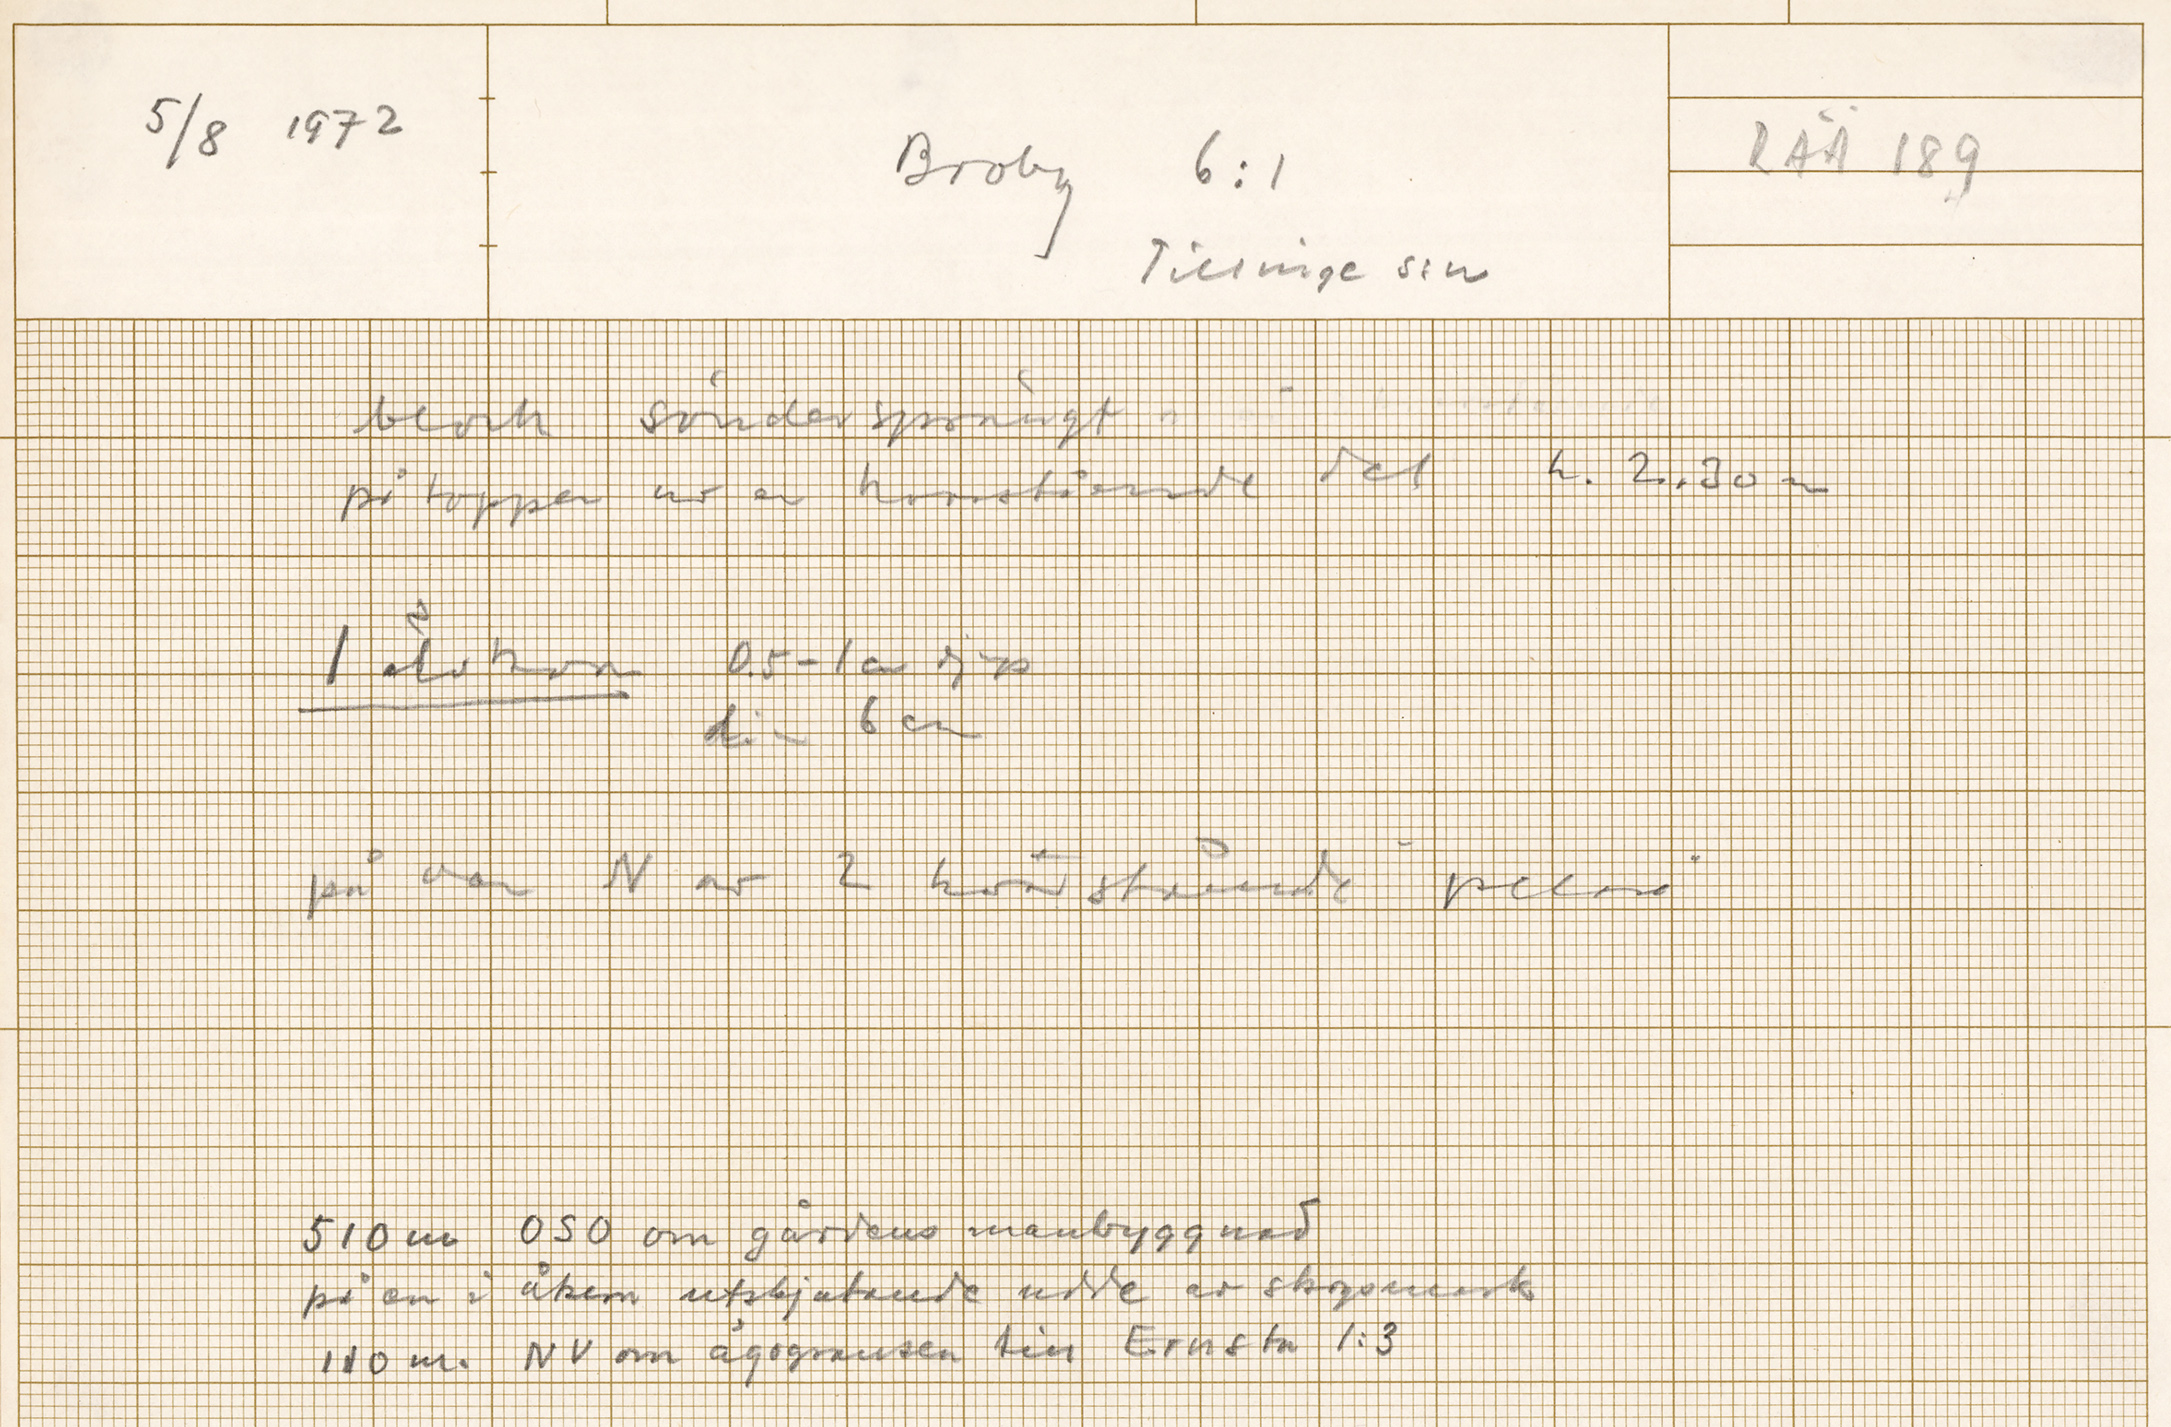 5/8 1972
Broby 6:1
Tillinge sn
RAÄ 189
block söndersprängt
på toppen av en kvarstående del h. 2.30 m
1 älvkvarn 0.5-1 cm djup
diam 6 cm
på den N av 2 kvarstående "pelare"
510 m OSO om gårdens manbyggnad
på en i åkern utskjutande udde av skogsmark
110 m. NV om ägogränsen till Ernsta 1:3